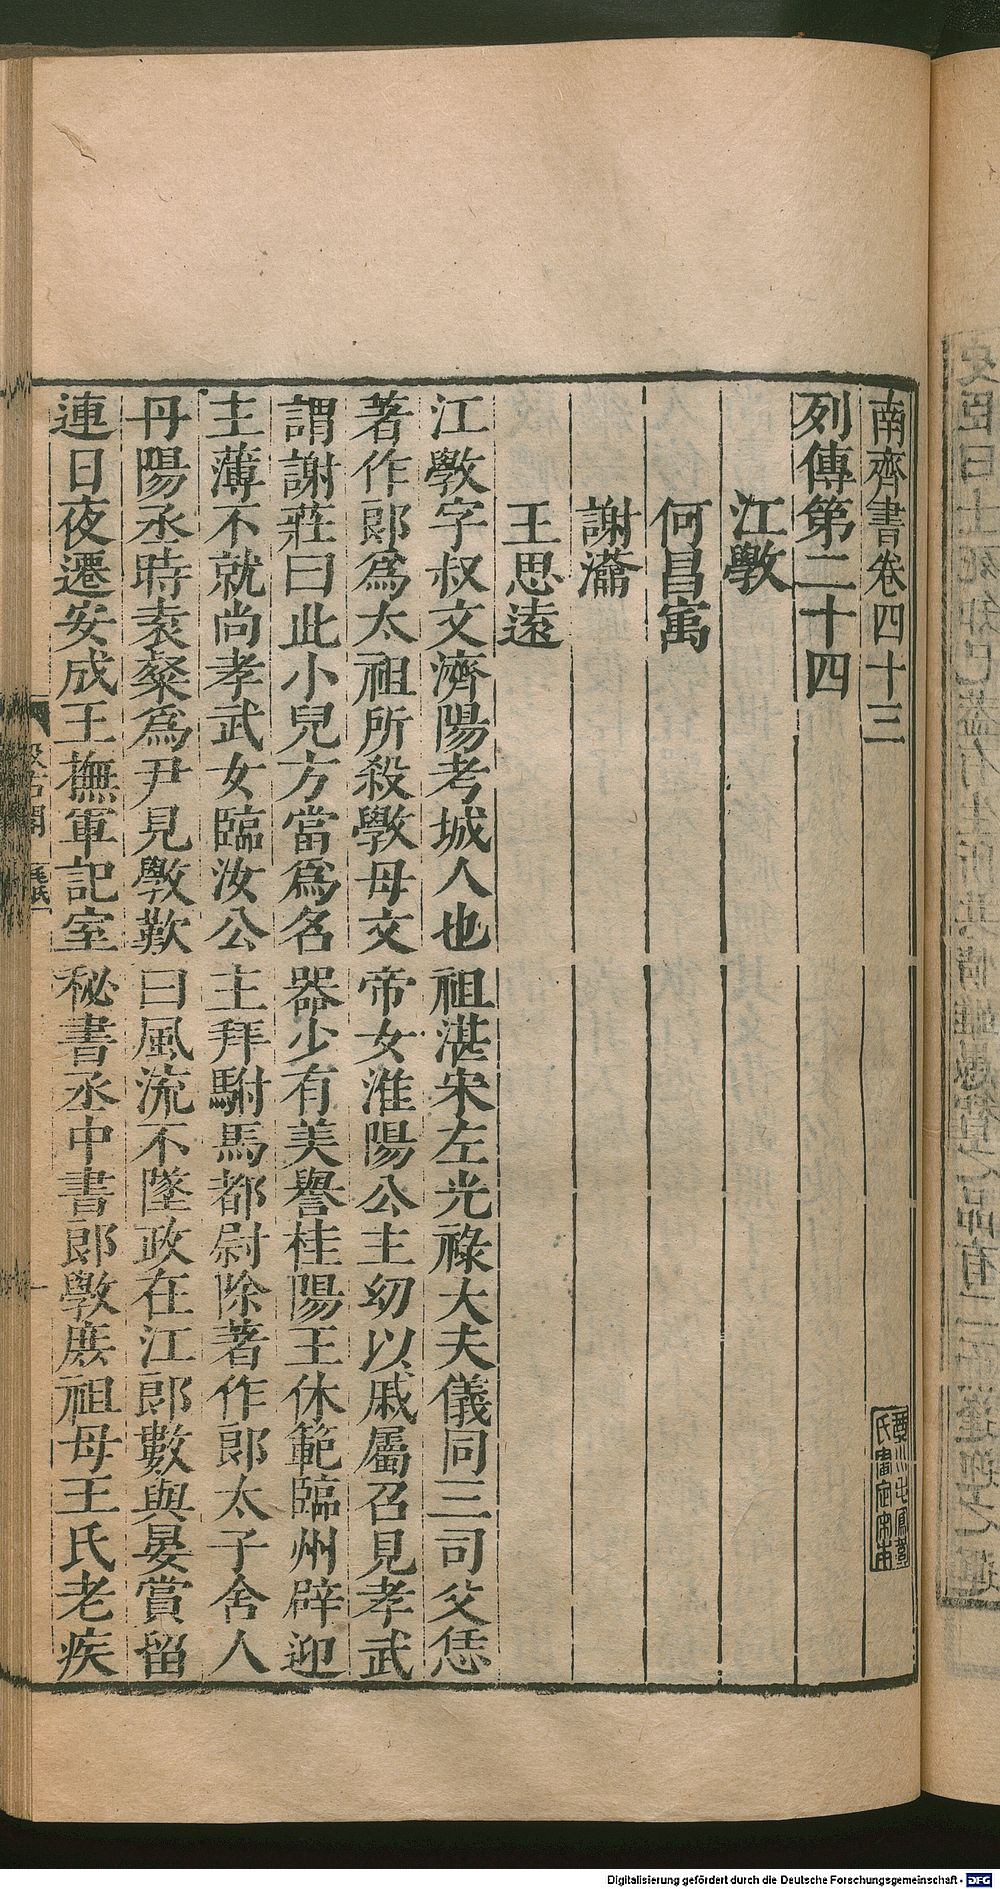 南齊書卷四十三
列傳第二十四
江斆
何昌㝢
謝瀟
王思遠
江斆字叔文濟陽考城人也祖湛宋左光祿大夫儀同三司父恁
著作郞爲太祖所殺斆母文帝女淮陽公主幼以戚屬召見孝武
謂謝莊曰此小兒方當爲名器少有美譽桂陽王休範臨州辟迎
主薄不就尚孝武女臨汝公主拜駙馬都尉除著作郞太子舍人
丹陽丞時袁粲爲尹見斆歎曰風流不墜政在江郞數與晏賞留
連日夜遷安成王撫軍記室秘書丞中書郞斆庶祖母王氏老疾
毛氏
Digitalisierung gefördert durch die Deutsche Forschungsgemeinschaft - DFG